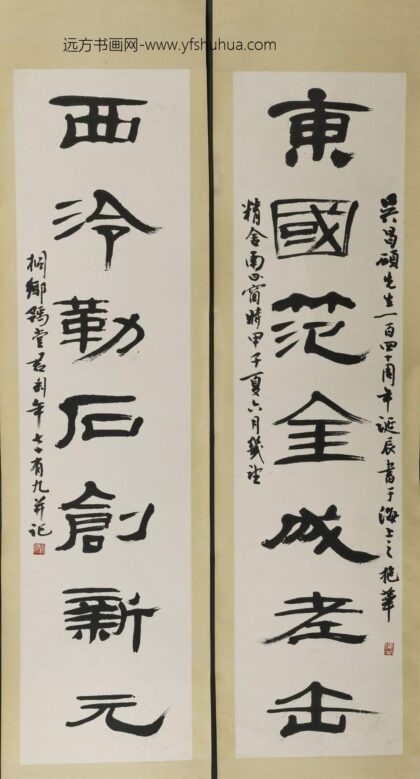 远方书画网-www.yfshuhua.com
東國范金成老缶
吴昌碩先生一百四十周年誕辰書于海上之抱華
精舍南窗時甲子夏六月幾望
西泠勒石創新元
桐鄉豫堂君匋年七十有九并記